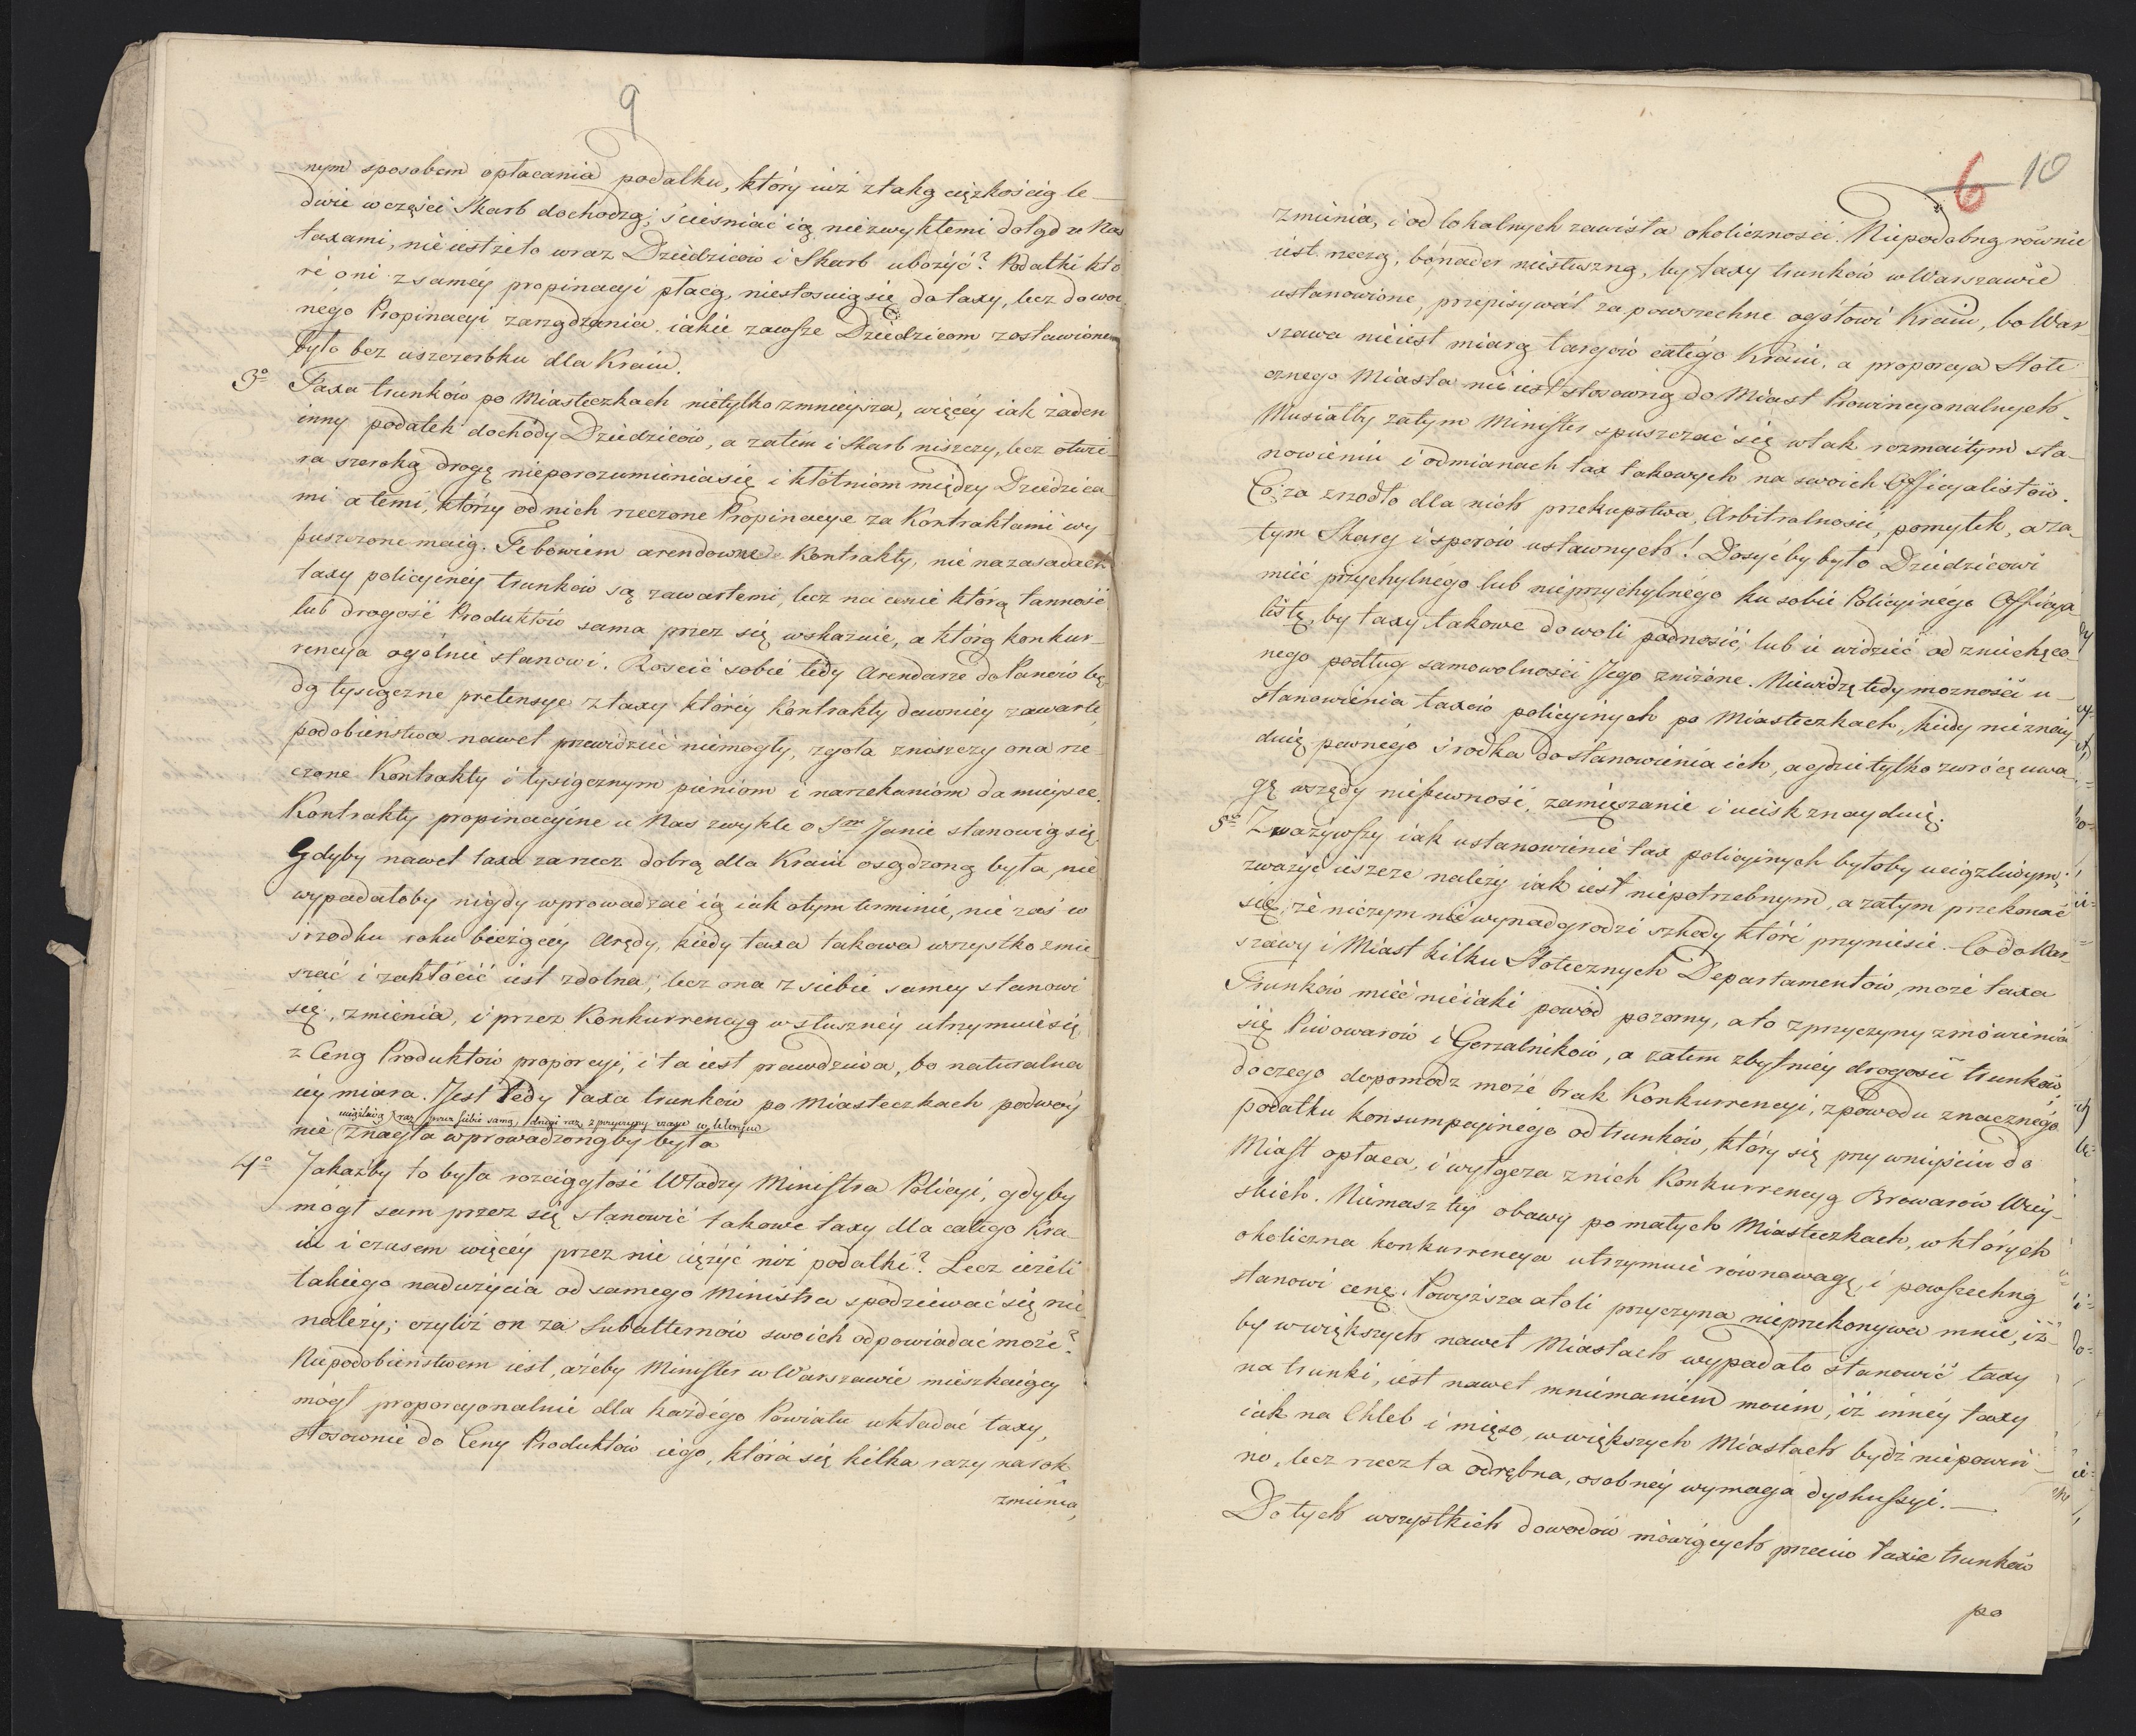 9
nym sposobem opłacania podatku, który iuż ztaką ciężkością le-
dwie wczęści Skarb dochodzą; ścieśniać ią niezwykłemi dotąd u Nas
taxami, nie iestżeto wraz Dziedziców i Skarb ubożyć? Podatki któ
re oni zsaméy propinacyi płacą, niestosuią się do taxy, lecz dowol
nego Propinacyi zarządzania iakie zawsze Dziedzicom zostawionem
było bez uszczerbku dla Kraiu.
3o Taxa trunków po Miasteczkach nietylko zmnieysza, więcéy iak żaden
inny podatek dochody Dziedziców, a zatém i Skarb niszczy, lecz otwie-
ra szeroką drogę nieporozumieniasię i kłótniom między Dziedzica-
mi a temi, którzy od nich rzeczone Propinacye za Kontraktami wy
puszczone maią. Te bowiem arendowne Kontrakty, nie na zasadach
taxy policyinéy trunków są zawartemi, lecz na cenie którą tanność
lub drogość Produktów sama przez się wskazuie, a którą konkur-
rencya ogólnie stanowi. Rościć sobie tedy Arendarze do Panów bę-
dą tysiączne pretensye ztaxy któréy Kontrakty dawniéy zawarte,
podobieństwa nawet przewidzieć niemogły, zgoła zniszczy ona rze-
czone Kontrakty i tysiącznym pieniom i narzekaniom da mieysce.
Kontrakty propinacyine u Nas zwykle o Sm Janie stanowią się
Gdyby nawet taxa za rzecz dobrą dla Kraiu osądzoną była, nie
wypadałoby nigdy wprowadzać ią iak otym terminie, nie zaś w
srzodku roku bieżącéy Arędy, kiedy taxa takowa wszystko zmie-
szać i zakłócić iest zdolna; lecz ona z siebie samey stanowi
się, zmienia, i przez Konkurrencyą w słusznéy utrzymuiesię
z Ceną Produktów proporcyi, i ta iest prawdziwa, bo naturalna
iéy miara. Jest tedy taxa trunków po Miasteczkach podwóy
uciążliwą raz przez siebie samą, drugi raz z przyczyny czasu w którym
nie znagła wprowadzoną by była
4o Jakażby to była rozciągłość Władzy Ministra Policyi, gdyby
mógł sam przez się stanowić takowe taxy dla całego Kra-
iu i czasem więcéy przez nie ciężyć niż podatki? Lecz ieżeli
takiego nadużycia od samego Ministra spodziewać się nie
należy; czyliż on za Subalternów swoich odpowiadać może?
Niepodobieństwem iest, ażeby Minister w Warszawie mieszkaiący
mógł proporcyonalnie dla każdego Powiatu układać taxy,
stosownie do Ceny Produktów iego, która się kilka razy na rok
zmienia,
6 10
zmienia, i od lokalnych zawisła okoliczności. Niepodobną równie
iest rzeczą, bo nader niesłuszną, by taxy trunków w Warszawie
ustanowione, przepisywać za powszechne ogółowi Kraiu, bo War
szawa nie iest miarą targów całego Kraiu, a proporcya Stołe
cznego Miasta nie iest stosowną do Miast Prowincyonalnych.
Musiałby zatym Minister spuszczać się wtak rozmaitym sta-
nowieniu i odmianach tax takowych na swoich Officyalistów.
Co za zrzodło dla nich przekupstwa, Arbitralności, pomyłek, a za-
tym Skarg i sporów ustawnych! Dosyć by było Dziedzicowi
mieć przychylnego lub nieprzychylnego ku sobie Policyinego Officya
listę, by taxy takowe dowoli podnosić, lub ie widzieć od zniechęco-
nego podług samowolności Jego zniżone. Niewidzę tedy możności u-
stanowienia taxów policyinych po Miasteczkach, kiedy nieznay
duię pewnego środka do stanowienia ich, a gdzie tylko zwrócę uwa-
gę wszędy niepewność, zamięszanie i ucisk znayduię.
5o Zważywszy iak ustanowienie tax policyinych byłoby uciążliwym,
zważyć ieszcze należy iak iest niepotrzebnym, a zatym przekonać
się, że niczym niewynadgrodzi szkody które przyniesie. Co do War-
szawy i Miast kilku Stołecznych Departamentów, może taxa
Trunków mieć nieiaki powód pozorny, a to z przyczyny zmówienia
się Piwowarów i Gorzalników, a zatem zbytniéy drogości trunków,
do czego dopomódz może brak Konkurrencyi, zpowodu znacznego
podatku konsumpcyinego od trunków, który się przy wniyściu do
Miast opłaca, i wyłącza z nich Konkurrencyą Browarów Wiey-
skich. Niemasz téy obawy po małych Miasteczkach, w których
okoliczna konkurrencya utrzymuie równowagę, i powszechną
stanowi cenę. Powyższa atoli przyczyna nieprzekonywa mnie, iż
by w większych nawet Miastach wypadało stanowić taxy
na trunki, iest nawet mniemaniem moiem, iż innéy taxy
iak na Chleb i mięso, w większych Miastach bydź niepowin-
no, lecz rzecz ta odrębna, osobnéy wymaga dyskussyi.—
Do tych wszystkich dowodów mówiących przeciw taxie trunków
po